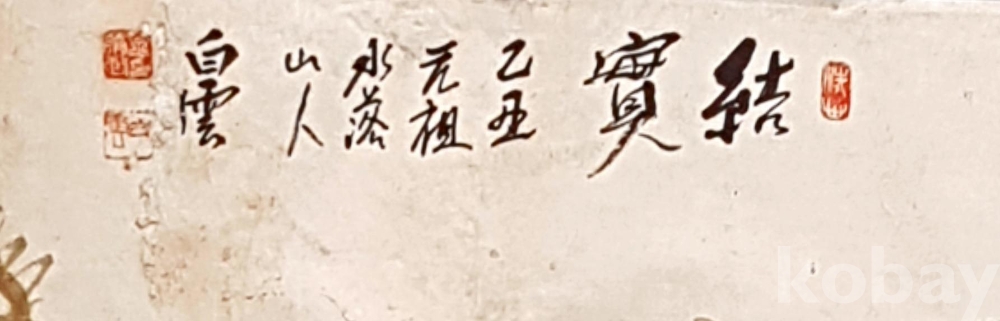 結實
乙丑
元祖
水落
山人
白雲
kobay